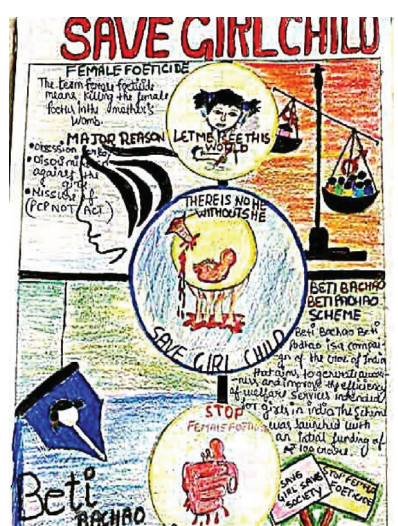 SAVE GIRL CHILD
FEMALE FOETICIDE
The term female foeticide
means killing the female
foetus in the mother's
womb.
MAJOR REASON
against the
girls
(PCPNDT ACT)
LET ME SEE THIS
WORLD
THERE IS NO HE
WITHOUT SHE
SAVE GIRL CHILD
BETI BACHAO
BETI PADHAO
SCHEME
Beti Bachao Beti
Padhao is a compai-
gn of the Gov. of India
that aims to generate aware-
ness and improve the efficiency
of welfare services intended
for girls in india The Scheme
was launched with
an initial funding of
100 crore.
STOP
FEMALE FOETICIDE
SAVE
GIRL SAVE
SOCIETY
STOP FEMALE
FOETICIDE
Beti
BACHAO